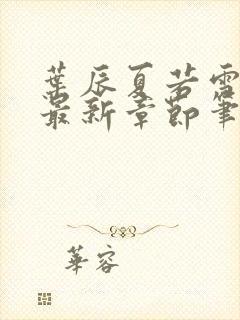 葉辰夏若雪
最新章節筆
華容